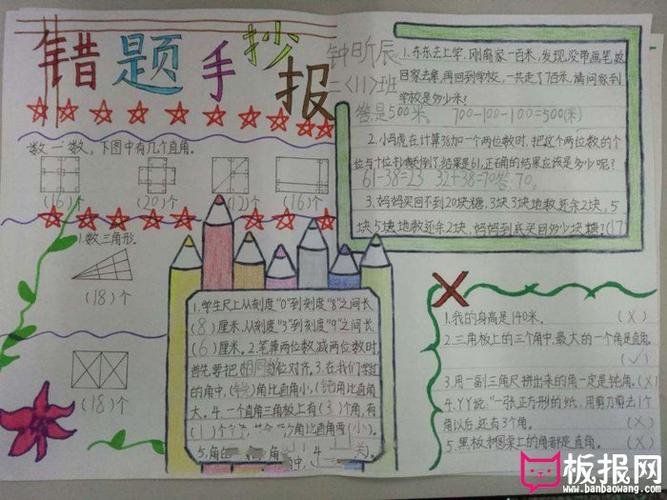 错题手抄报
钟昕辰
二(11)班
数一数，下图中有几个直角。
(16)个
(20)个
(12)个
(16)个
1.数三角形.
(18)个
(18)个
1.学生尺上从刻度"0"到刻度"8"之间长
(8)厘米，从刻度"3"到刻度"9"之间长
(6)厘米。2.笔算两位数减两位数时
首先要把(相同数)位对齐。3.在我们学过
的角中，(锐)角比直角小，(钝)角比直角
大。4.一个直角三角板上有(3)个角，有
(1)个
角比直角要(小)。
5.角
1.东东去上学，刚离家一百米，发现没带画笔，就
回家去拿，再回到学校，一共走了7百米，请问家到
学校是多少米？
答是500米。 700-100-100=500(米)
2.小马虎在计算38加一个两位数时，把这个两位数的个
位与十位形数倒了，结果是61，正确的结果应该是多少呢？
61-38=23 32+38=70答:70。
3.妈妈买回不到20块糖，3块3块地数还余2块，5
块5块地数还余2块，妈妈到底买回多少块糖？(17)
1.我的身高是140米。 (X)
2.三角板上的三个角中，最大的一个角是直角。
(✓)
3.用一副三角尺拼出来的角一定是钝角。(X)
4.丫丫说："一张正方形的纸，用剪刀剪去1个
角以后还有3个角。 (X)
5.黑板和国旗上的角都是直角。 (X)
板报网
www.banbaowang.com